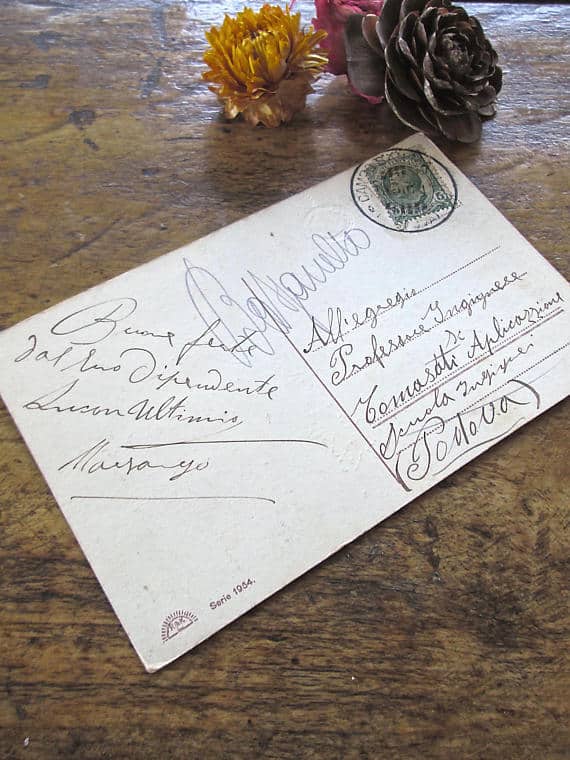 Buone feste
dal Suo Dipendente
Lucon Ultimio
Marsango
All'egregio
Professore Ingignere
di
Tomasati Aplicazione
Scuola Ingignei
(Padova)
Serie 1954.
CAMPO